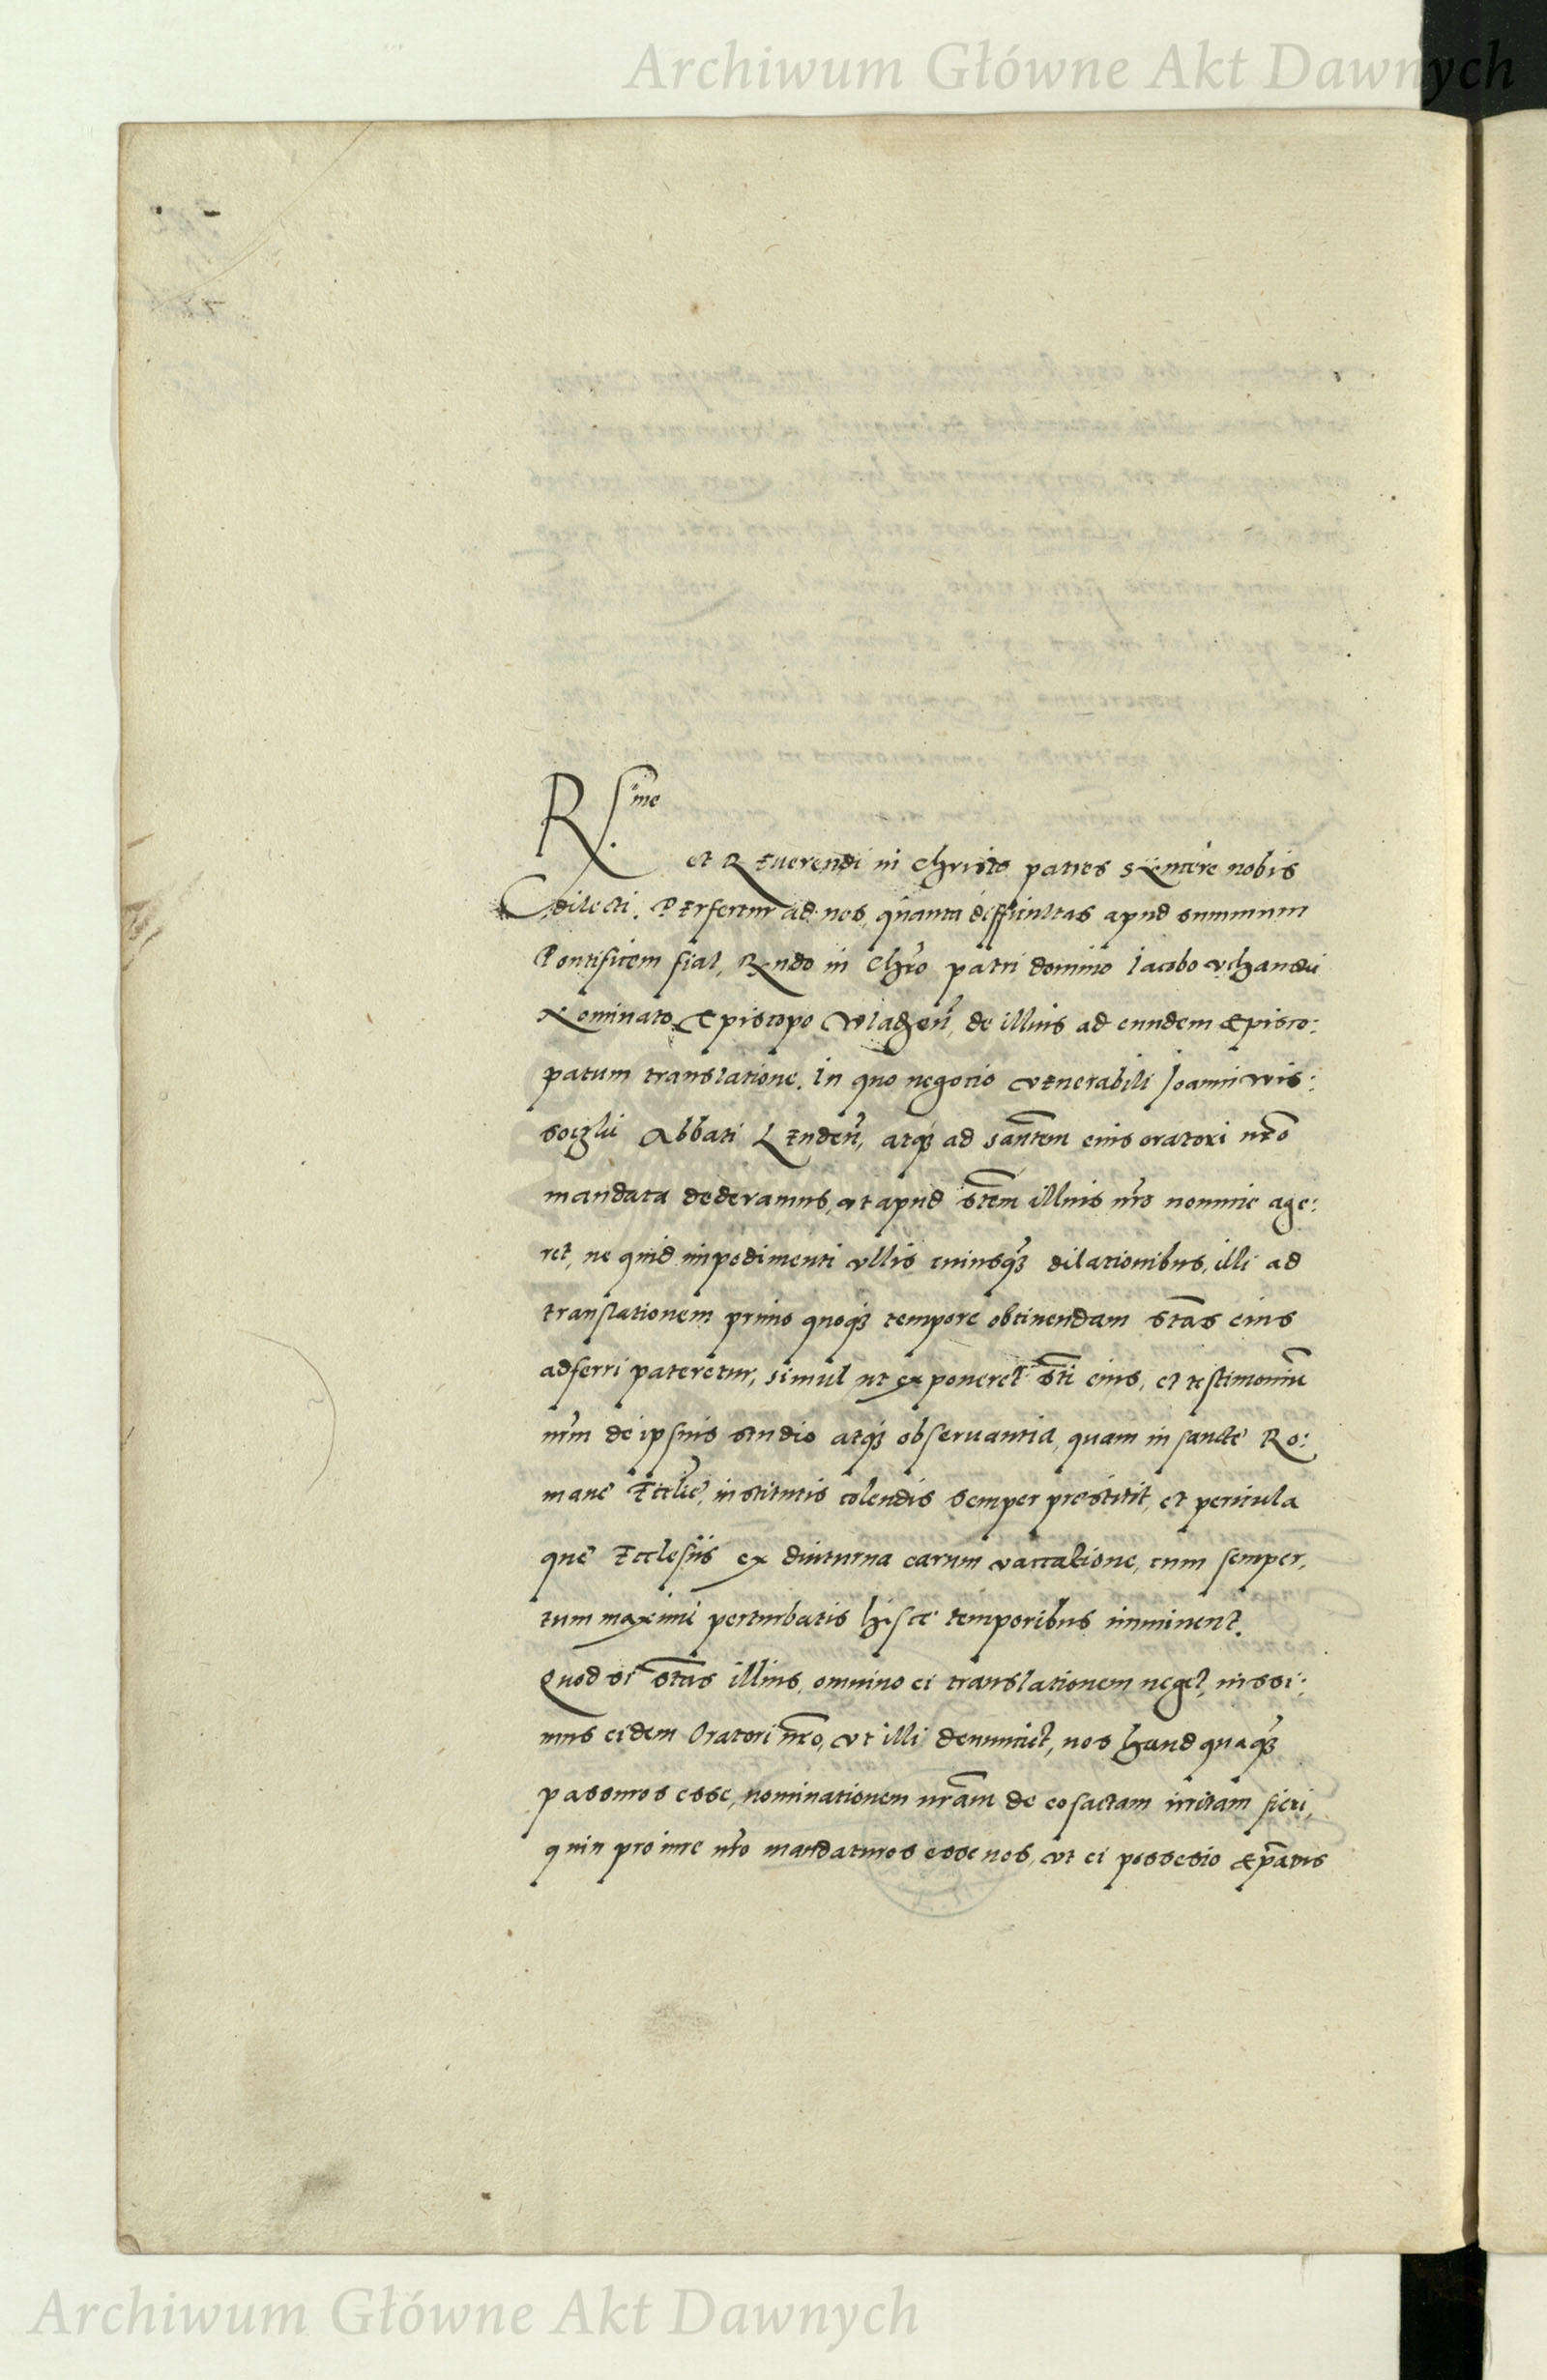 Archiwum Główne Akt Dawnych
R.sime
et Reuerendi in Christo patres syncere nobis
dilecti. Perfertur ad nos, quanta difficultas apud summum
Pontificem fiat, Rndo in Chro patri domino Iacobo Vchanski
Nominato Episcopo Wladen, de illius ad eundem Episco:
patum translatione. In quo negocio Venerabili Joanni Wis:
soczki Abbati Lenden, atq ad santem eius oratori nro
mandata dederamus, vt apud stem illius nro nomine age:
ret, ne quid impedimenti vllis cuiusq dilationibus, illi ad
translationem primo quoq tempore obtinendam stas eius
adferri pateretur, simul ut exponeret sti eius, et testimoniu
nrm de ipsius studio atq obseruantia, quam in sancte Ro:
mane Ecclie, institutis colendis semper prestitit, et pericula
que Ecclesiis ex diuturna earum vaccatione, cum semper,
tum maxime perturbatis hisce temporibus imminent.
Quod si stas illius, omnino ei translationem neget, iussi:
mus eidem Oratori nro, vt illi denunciet, nos haudquaq
passuros esse, nominationem nram de eo factam irritam fieri,
quin pro iure nro mandaturos esse nos, vt ei possesio Epatus
Archiwum Główne Akt Dawnych